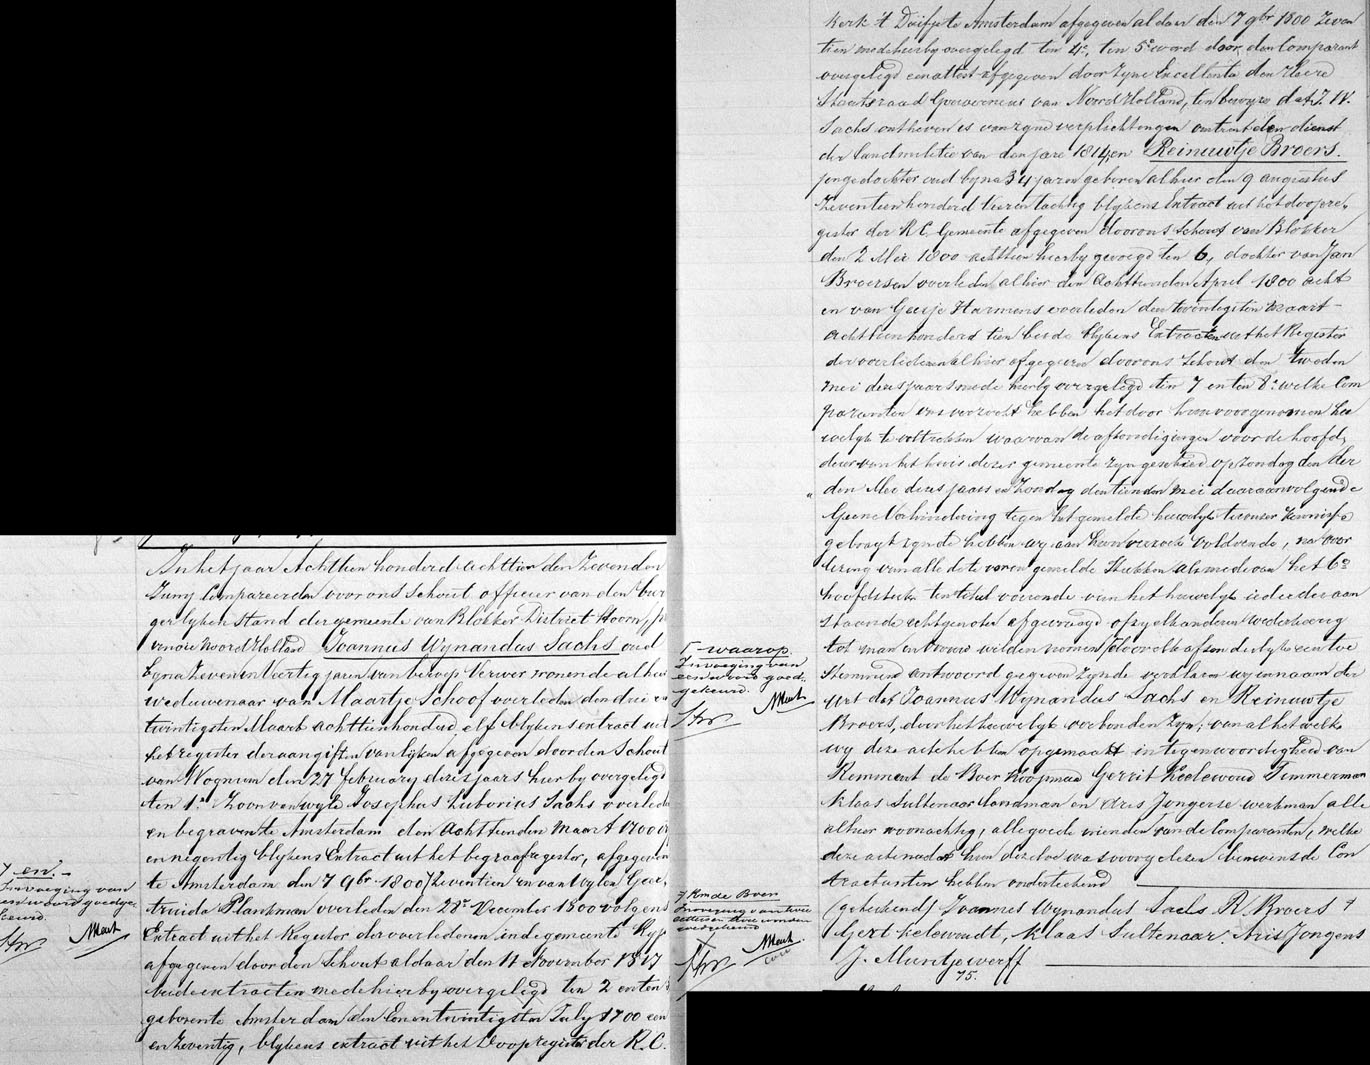 In het jaar Achttien honderd achttien den Zevenden
Juny Compareerden voor ons schout officier van den bur
gerlyken stand der gemeente van Blokker District Hoorn, pro
vincie Noord Holland Joannus Wynandus Sachs oud
byna Zeven en Veertig jaren van beroep Verwer wonende alhier
weduwenaar van Maartje Schoof overleden den drie en
twintigsten Maart achttienhonderd elf blykens extract uit
het register der aangiften van lijken afgegeven door den Schout
van Wognum den 27 february dezes jaars hierby overgelegd
ten 1e Zoon van wyle Josephus Liborius Sachs overleden
en begraven te Amsterdam den Achttienden Maart 1700
en negentig blykens Extract uit het begraafregister, afgegeven
te Amsterdam den 7 9br 1800 Zeventien en van Wylen Geer
truida Plankman overleden den 28e December 1800 volgens
Extract uit het Register der overledenen in de gemeente Ryp
afgegeven door den Schout aldaar den 11 November 1817
beide extracten mede hierby overgelegd ten 2 en ten 3
geboren te Amsterdam den Een en twintigsten July 1700 een
en zeventig, blykens extract uit het Doopregister der R.C.
en
Invoeging van
een woord goedge-
keurd.
kerk 't Duifje te Amsterdam afgegeven aldaar den 7 9br 1800 Zeven
tien mede hierby overgelegd ten 4e, ten 5e word door den Comparant
overgelegd een attest afgegeven door Zyne Excellentie den Heere
Staatsraad Gouverneur van Noord Holland, ten bewyze dat J. W.
Sachs ontheven is van zyne verplichtingen omtrent den dienst
der landmilitie van den jare 1814, en Reinuwtje Broers.
jonge dochter oud byna 34 jaren geboren alhier den 9 augustus
Zeventienhonderd vier en tachtig blykens Extract uit het doopre-
gister der R.C. Gemeente afgegeven door ons Schout van Blokker
den 2 Mei 1800 achttien hierby gevoegd ten 6, dochter van Jan
Broersen overleden alhier den Achttienden April 1800 acht
en van Geesje Harmens overleden den twintigsten Maart
achttienhonderd tien beide blykens Extracten uit het Register
der overledenen alhier afgegeven door ons Schout den tweeden
mei dezes jaars mede hierby overgelegd ten 7 en ten 8e welke Com
paranten ons verzocht hebben het door hun voorgenomen hu
welyk te voltrekken waarvan de afkondigingen voor de hoofd,
deur van het huis dezer gemeente zyn geschied op Zondag den der
den Mei dezes jaars en Zondag den tienden mei daaraanvolgende
Geene Verhindering tegen het gemelde huwelyk te onzer kennisse
gebragt zynde hebben wy aan hun verzoek voldoende, na voor
lezing van alle de te voren gemelde Stukken als mede van het 6e
hoofdstuk ten titel voerende van het huwelyk ieder der aan
staande echtgenoten afgevraagd of zy elkanderen wederkeerig
tot man en vrouw wilden nemen door elk afzonderlyk een toe
stemmend antwoord gegeven zynde verklaren wy in naam der
wet dat Joannus Wynandus Sachs en Reinuwtje
Broers, door het huwelyk verbonden zyn; van al het welke
wy deze acte hebben opgemaakt in tegenwoordigheid van
Remmert de Boer koopman Gerrit Keelewoud Timmerman
Klaas Sultenaar landman en Aris Jongerse werkman alle
alhier woonachtig, alle goede vrienden van de Comparanten, welke
deze acte nadat hun dezelve was voorgelezen benevens de Con
tractanten hebben ondertekend
(getekend) Joannes Wynandus Sachs R Broers
Gert kelewoudt, Klaas Sultenaar. Aris Jongens
J. Muntjewerff
75.
waarop.
Invoeging van
een woord goed-
gekeurd.
R m de Boer